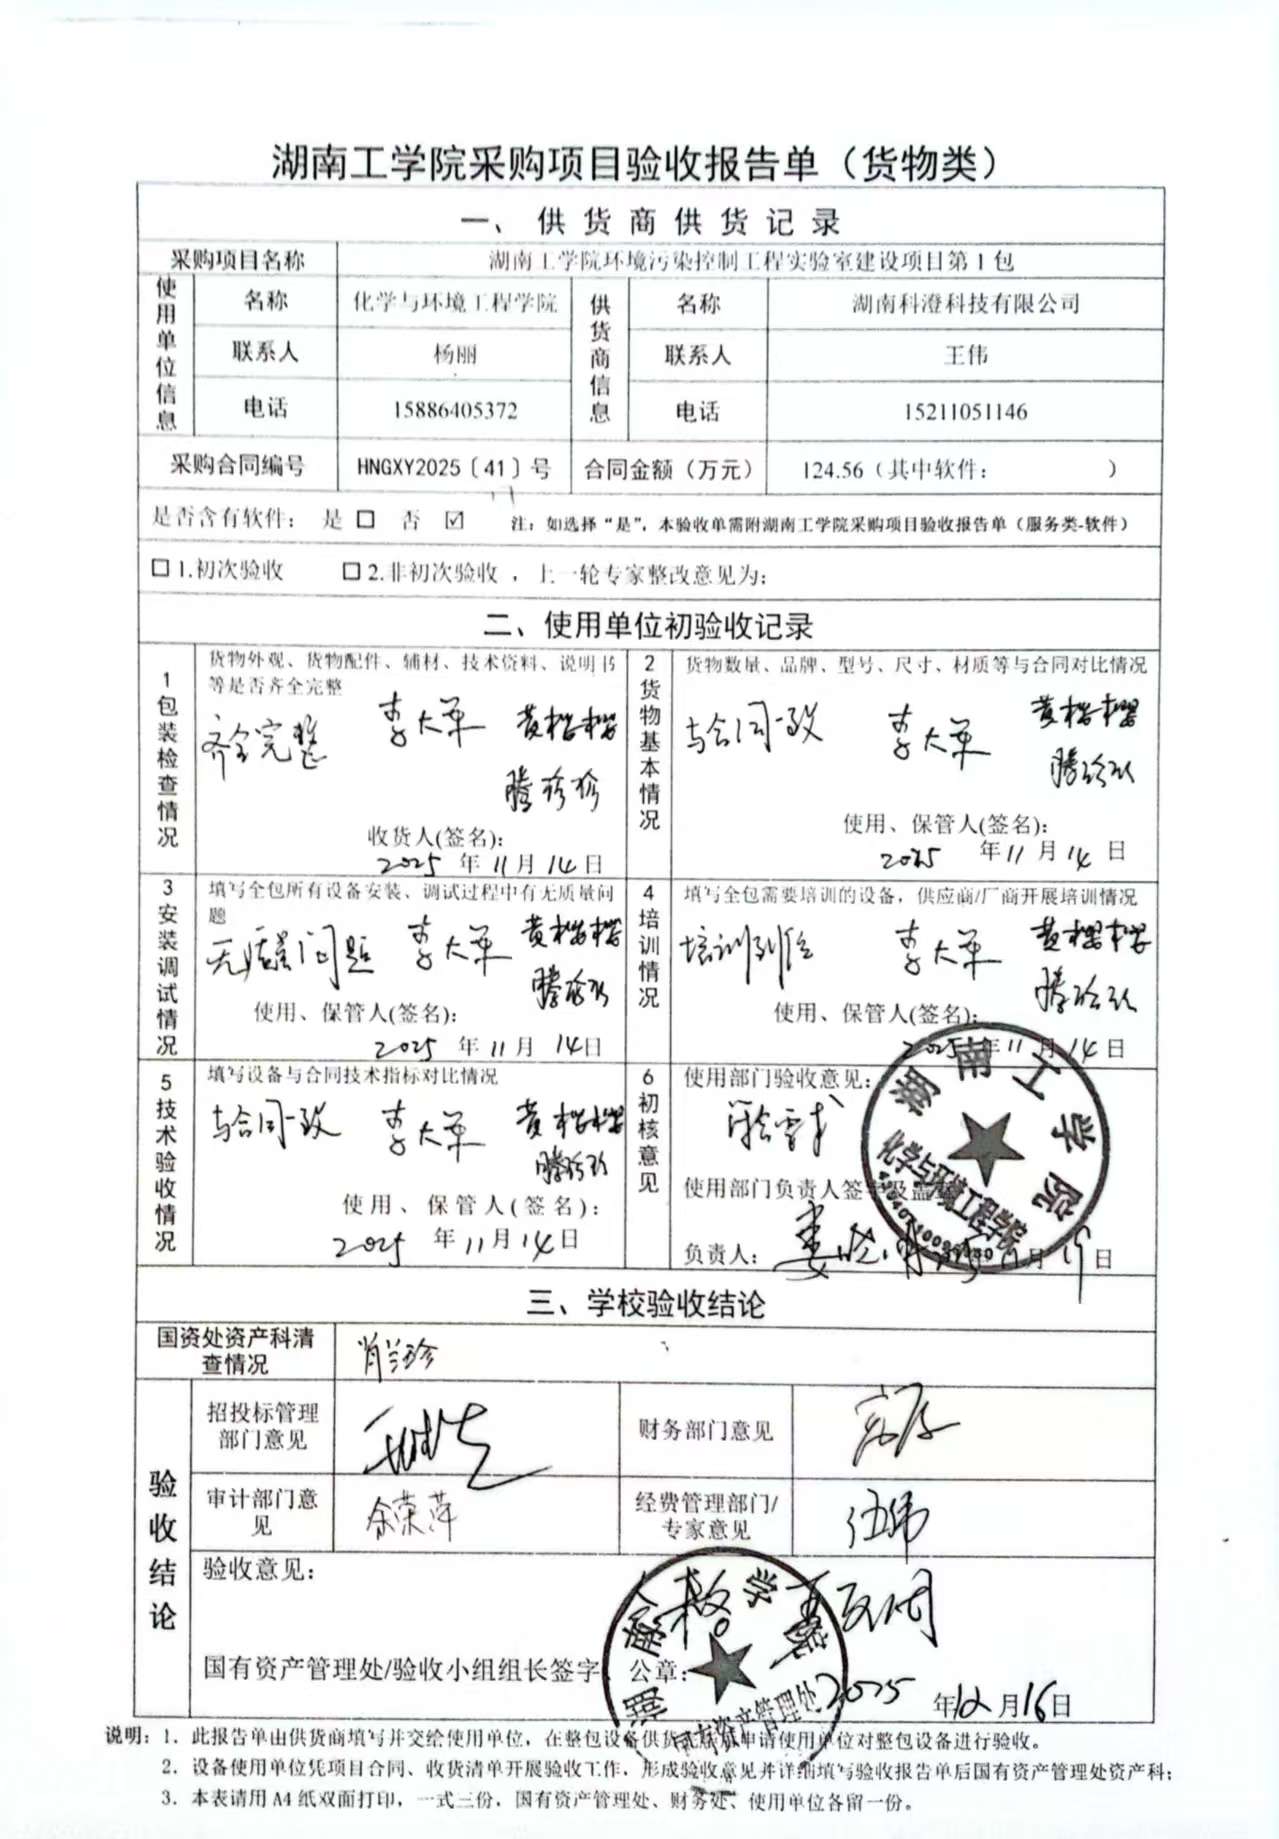 湖南工学院采购项目验收报告单（货物类）
一、供货商供货记录
采购项目名称 湖南工学院环境污染控制工程实验室建设项目第1包
使用单位信息 名称 化学与环境工程学院 供货商信息 名称 湖南科澄科技有限公司
联系人 杨丽 联系人 王伟
电话 15886405372 电话 15211051146
采购合同编号 HNGXY2025〔41〕号 合同金额（万元） 124.56（其中软件： ）
是否含有软件： 是 □ 否 ☑ 注：如选择“是”，本验收单需附湖南工学院采购项目验收报告单（服务类-软件）
□ 1.初次验收 □ 2.非初次验收 ，上一轮专家整改意见为：
二、使用单位初验收记录
1包装检查情况
货物外观、货物配件、辅材、技术资料、说明书
等是否齐全完整
齐全完整 李大军 黄樱樱
滕珍珍
收货人(签名)：
2025 年 11 月 14 日
2货物基本情况
货物数量、品牌、型号、尺寸、材质等与合同对比情况
与合同一致 李大军 黄樱樱
滕珍珍
使用、保管人(签名)：
2025 年 11 月 14 日
3安装调试情况
填写全包所有设备安装、调试过程中有无质量问
题
无质量问题 李大军 黄樱樱
滕珍珍
使用、保管人(签名)：
2025 年 11 月 14 日
4培训情况
填写全包需要培训的设备，供应商/厂商开展培训情况
培训到位 李大军 黄樱樱
滕珍珍
使用、保管人(签名)：
2025 年 11 月 14 日
5技术验收情况
填写设备与合同技术指标对比情况
与合同一致 李大军 黄樱樱
滕珍珍
使用、保管人(签名)：
2025 年 11 月 14 日
6初核意见
使用部门验收意见：
使用部门负责人签字及盖章
负责人： 月 日
湖南工学院
化学与环境工程学院
三、学校验收结论
国资处资产科清
查情况
验收结论
招投标管理
部门意见
财务部门意见
审计部门意
见 余荣萍
经费管理部门/
专家意见 伍伟
验收意见：
合格
国有资产管理处/验收小组组长签字、公章：
2025 年 12 月 16 日
湖南工学院
国有资产管理处
说明：1. 此报告单由供货商填写并交给使用单位，在整包设备供货完成后申请使用单位对整包设备进行验收。
2. 设备使用单位凭项目合同、收货清单开展验收工作，形成验收意见并详细填写验收报告单后国有资产管理处资产科；
3. 本表请用 A4 纸双面打印，一式三份，国有资产管理处、财务处、使用单位各留一份。